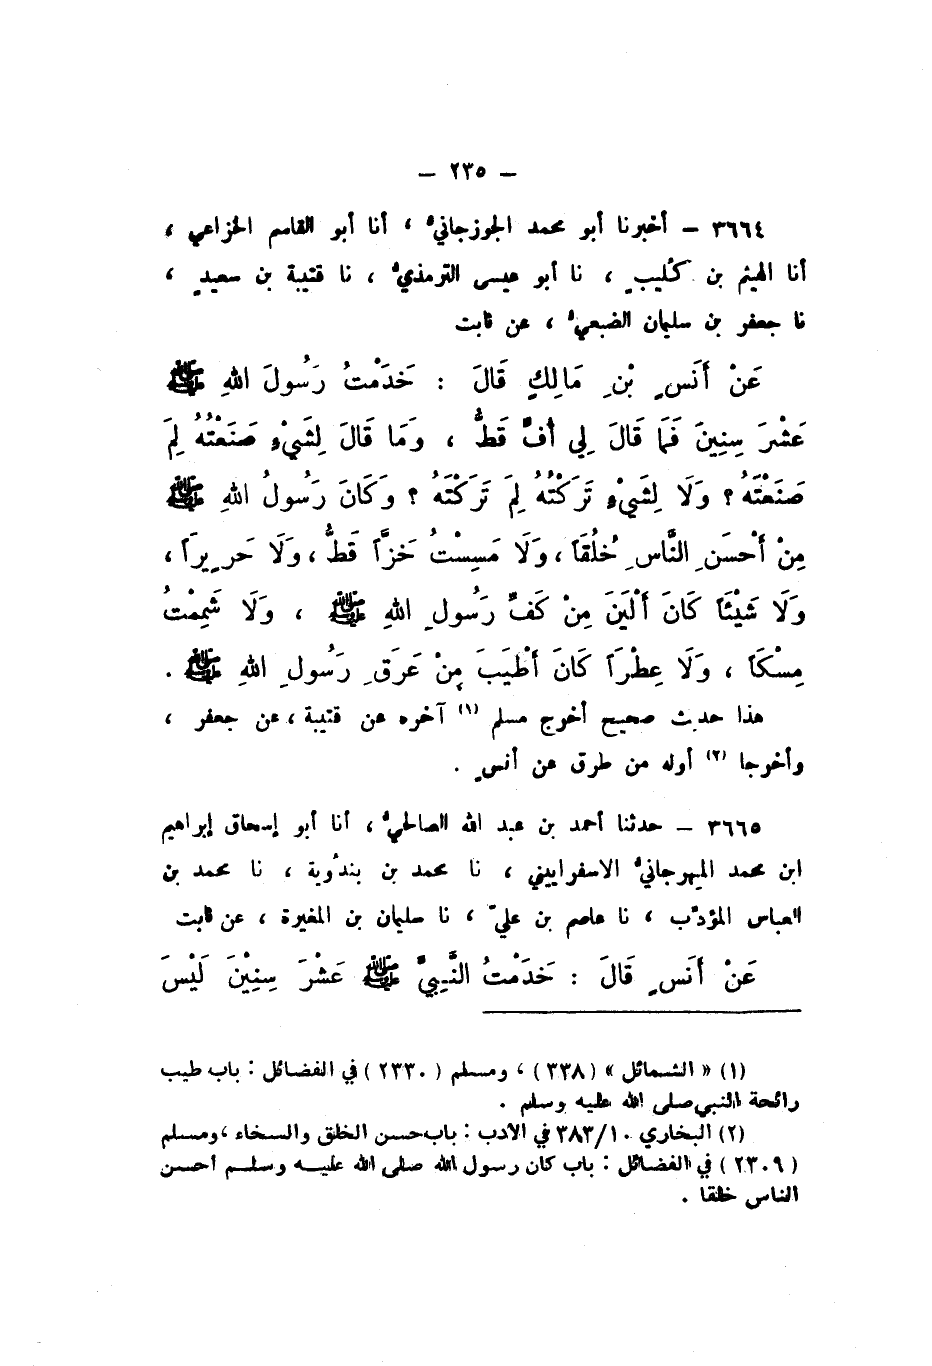 – ٢٣٥ –
٣٦٦٤ – أخبرنا أبو محمد الجوزجانيُّ ، أنا أبو القاسم الخزاعي ،
أنا الهيثم بن كُليبٍ ، نا أبو عيسى الترمذيُّ ، نا قتيبة بن سعيدٍ ،
نا جعفر بن سليمان الضبعيُّ ، عن ثابت
عَنْ أَنَسِ بْنِ مَالِكٍ قَالَ : خَدَمْتُ رَسُولَ اللهِ ﷺ
عَشْرَ سِنِينَ فَمَا قَالَ لِي أُفٍّ قَطُّ ، وَمَا قَالَ لِشَيْءٍ صَنَعْتُهُ لِمَ
صَنَعْتَهُ ؟ وَلَا لِشَيْءٍ تَرَكْتُهُ لِمَ تَرَكْتَهُ ؟ وَكَانَ رَسُولُ اللهِ ﷺ
مِنْ أَحْسَنِ النَّاسِ خُلُقَاً ، وَلَا مَسِسْتُ خَزَّاً قَطُّ ، وَلَا حَرِيرَاً ،
وَلَا شَيْئَاً كَانَ أَلْيَنَ مِنْ كَفِّ رَسُولِ اللهِ ﷺ ، وَلَا شَمِمْتُ
مِسْكَاً ، وَلَا عِطْرَاً كَانَ أَطْيَبَ مِنْ عَرَقِ رَسُولِ اللهِ ﷺ .
هذا حديث صحيح أخرج مسلم (١) آخره عن قتيبة ، عن جعفر ،
وأخرجا (٢) أوله من طرق عن أنسٍ .
٣٦٦٥ – حدثنا أحمد بن عبد الله الصالحيُّ ، أنا أبو إسحاق إبراهيم
ابن محمد المهرجانيُّ الاسفراييني ، نا محمد بن بندُوية ، نا محمد بن
العباس المؤدِّب ، نا عاصم بن عليّ ، نا سليمان بن المغيرة ، عن ثابت
عَنْ أَنَسٍ قَالَ : خَدَمْتُ النَّبِيَّ ﷺ عَشْرَ سِنِيْنَ لَيْسَ
(١) « الشمائل » (٣٣٨) ، ومسلم (٢٣٣٠) في الفضائل : باب طيب
رائحة النبي صلى الله عليه وسلم .
(٢) البخاري ٣٨٣/١٠ في الأدب : باب حسن الخلق والسخاء ، ومسلم
(٢٣٠٩) في الفضائل : باب كان رسول الله صلى الله عليه وسلم أحسن
الناس خلقا .